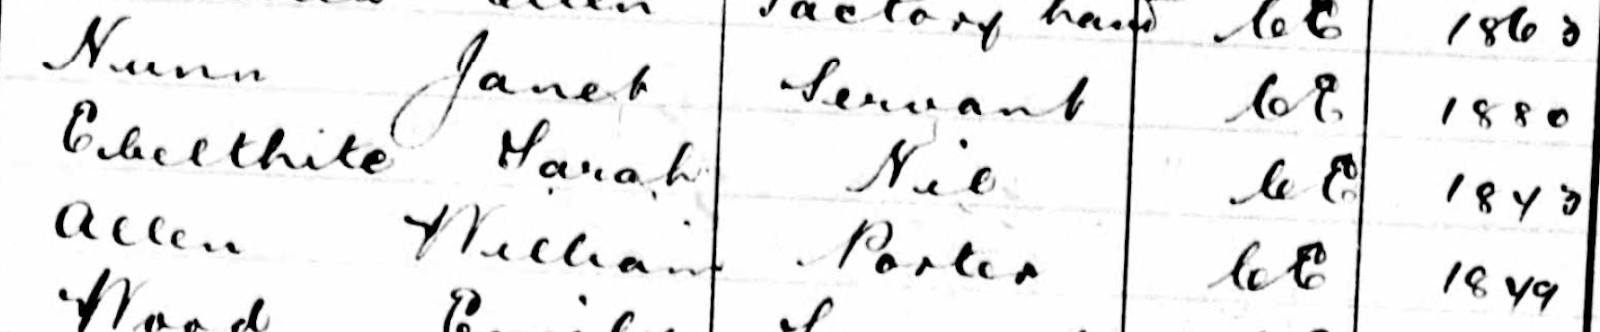 Allen Factory hand CE 1863
Nunn Janet Servant CE 1880
Ebelthite Sarah Nil CE 1843
Allen William Porter CE 1849
Wood Emily